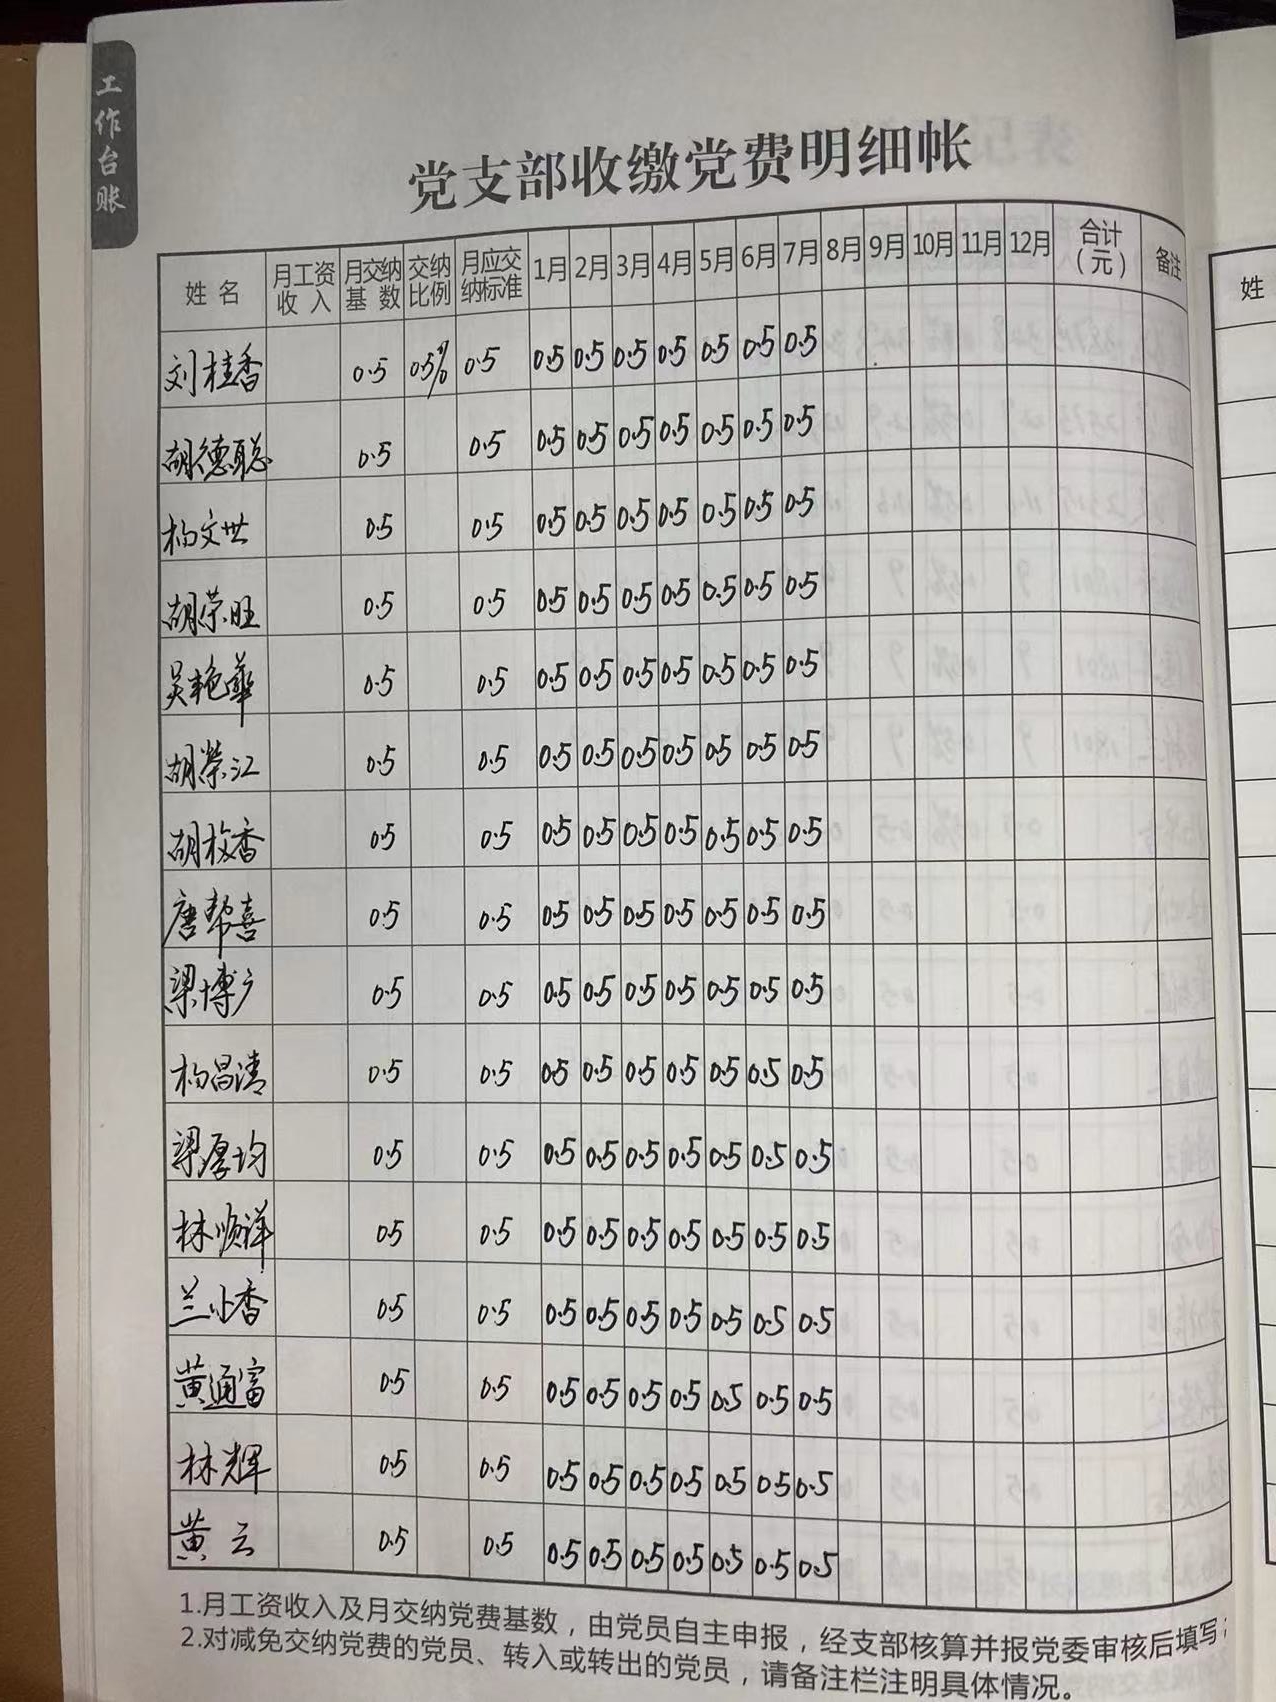 工作台账
党支部收缴党费明细帐
姓名 月工资收入 月交纳基数 交纳比例 月应交纳标准 1月 2月 3月 4月 5月 6月 7月 8月 9月 10月 11月 12月 合计（元） 备注
刘桂香 0.5 0.5% 0.5 0.5 0.5 0.5 0.5 0.5 0.5 0.5
胡德聪 0.5 0.5 0.5 0.5 0.5 0.5 0.5 0.5 0.5
杨文世 0.5 0.5 0.5 0.5 0.5 0.5 0.5 0.5 0.5
胡荣旺 0.5 0.5 0.5 0.5 0.5 0.5 0.5 0.5 0.5
吴艳華 0.5 0.5 0.5 0.5 0.5 0.5 0.5 0.5 0.5
胡荣江 0.5 0.5 0.5 0.5 0.5 0.5 0.5 0.5 0.5
胡枚香 0.5 0.5 0.5 0.5 0.5 0.5 0.5 0.5 0.5
唐帮喜 0.5 0.5 0.5 0.5 0.5 0.5 0.5 0.5 0.5
梁博户 0.5 0.5 0.5 0.5 0.5 0.5 0.5 0.5 0.5
杨昌清 0.5 0.5 0.5 0.5 0.5 0.5 0.5 0.5 0.5
梁厚均 0.5 0.5 0.5 0.5 0.5 0.5 0.5 0.5 0.5
林顺祥 0.5 0.5 0.5 0.5 0.5 0.5 0.5 0.5 0.5
兰小香 0.5 0.5 0.5 0.5 0.5 0.5 0.5 0.5 0.5
黄通富 0.5 0.5 0.5 0.5 0.5 0.5 0.5 0.5 0.5
林辉 0.5 0.5 0.5 0.5 0.5 0.5 0.5 0.5 0.5
黄云 0.5 0.5 0.5 0.5 0.5 0.5 0.5 0.5 0.5
1.月工资收入及月交纳党费基数，由党员自主申报，经支部核算并报党委审核后填写；
2.对减免交纳党费的党员、转入或转出的党员，请备注栏注明具体情况。
姓